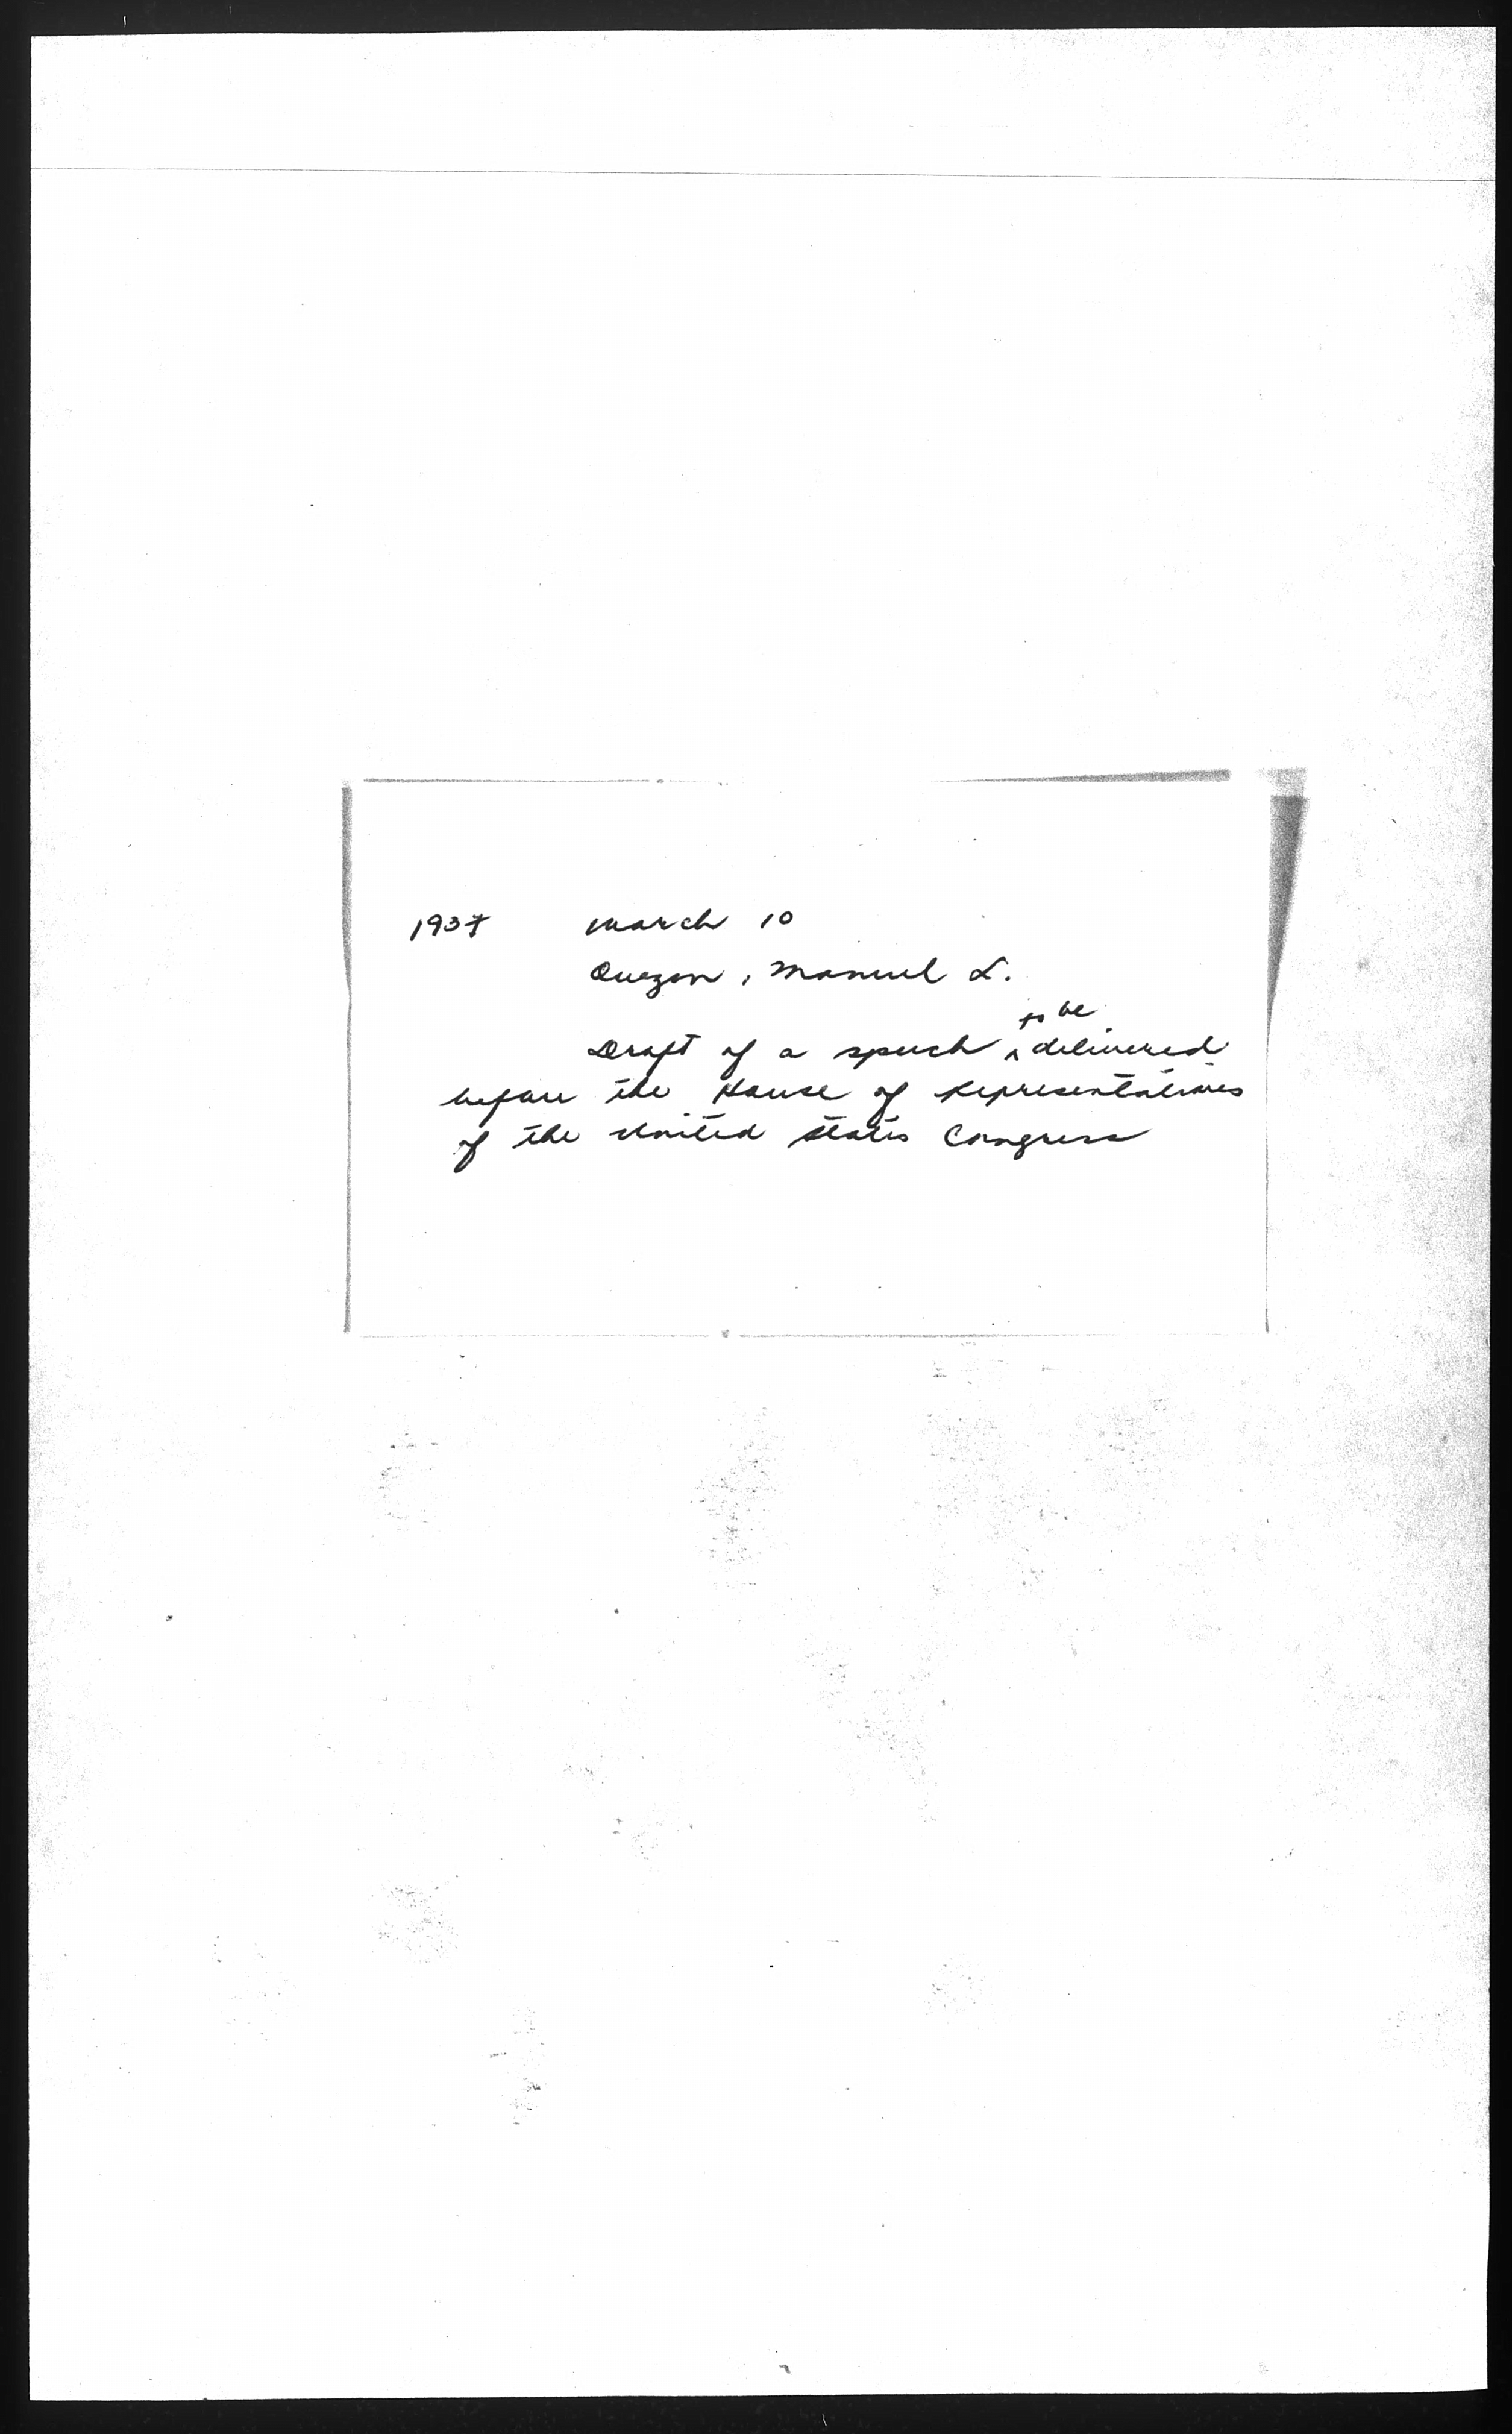 1937 March 10
Quezon, Manuel L.
to be
Draft of a speech ^ delivered
before the House of Representatives
of the United States Congress